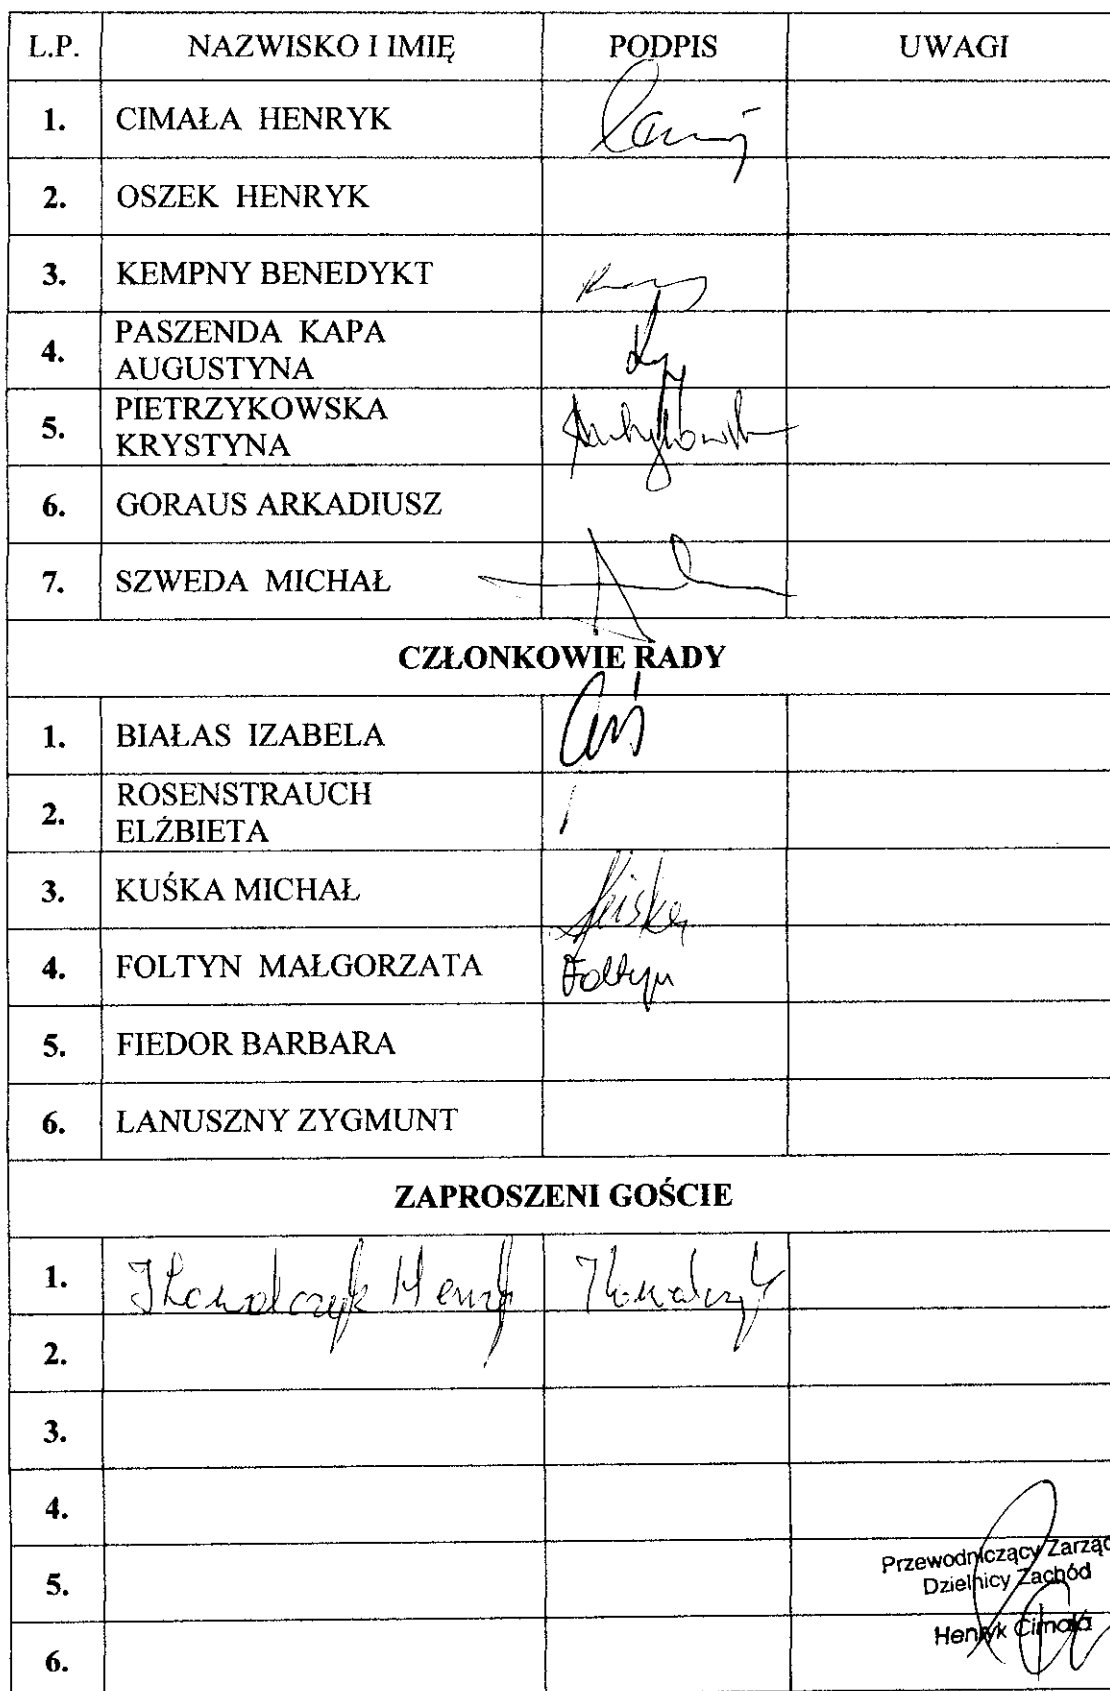 L.P. NAZWISKO I IMIĘ PODPIS UWAGI
1. CIMAŁA HENRYK
2. OSZEK HENRYK
3. KEMPNY BENEDYKT
4. PASZENDA KAPA
AUGUSTYNA
5. PIETRZYKOWSKA
KRYSTYNA
6. GORAUS ARKADIUSZ
7. SZWEDA MICHAŁ
CZŁONKOWIE RADY
1. BIAŁAS IZABELA
2. ROSENSTRAUCH
ELŻBIETA
3. KUŚKA MICHAŁ
4. FOLTYN MAŁGORZATA Foltyn
5. FIEDOR BARBARA
6. LANUSZNY ZYGMUNT
ZAPROSZENI GOŚCIE
1.
2.
3.
4.
5.
6.
Przewodniczący Zarząd
Dzielnicy Zachód
Henryk Cimała